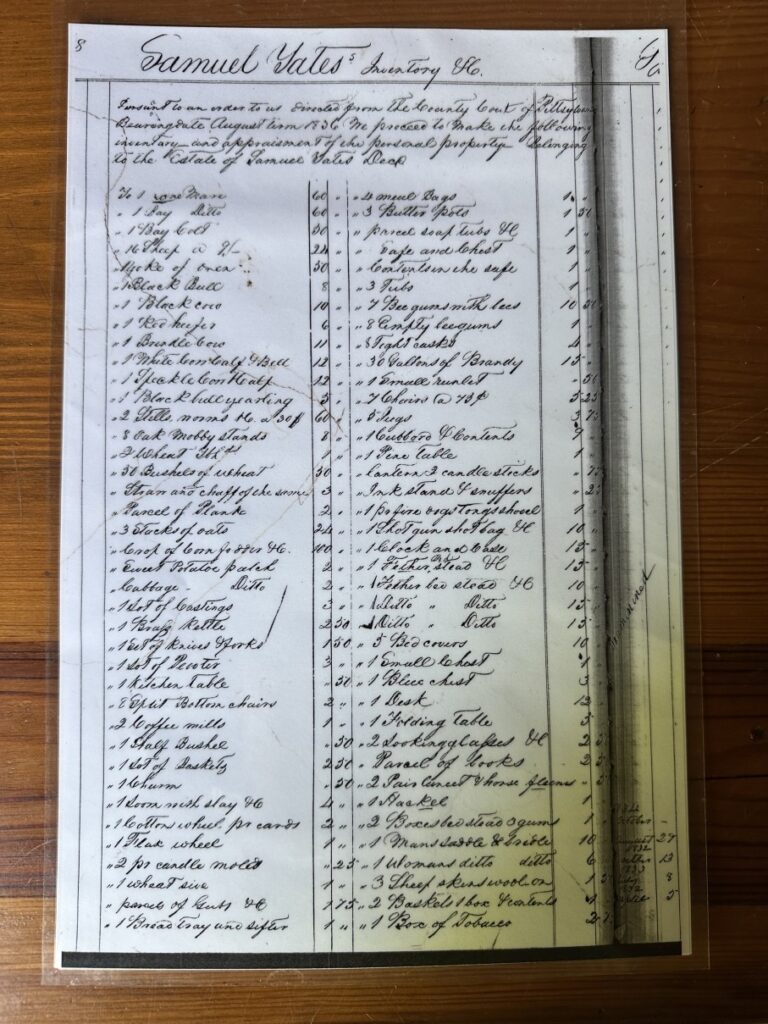 8
Samuel Yates's Inventory &C.
Pursuant to an order to us directed from the County Cout of Pittsylvan
Bearing date August term 1836 We proceed to make the following
inventory and appraisment of the personal property Belonging
to the Estate of Samuel Yates Decd
To 1 rone Mare 60 "
" 1 Bay Ditto 60 "
" 1 Bay Colt 50 "
" 16 Sheep a 9/- 24 "
" 1 yoke of oxen 50 "
" 1 Black Bull 8 "
" 1 Black cow 10 "
" 1 Red heifer 6 "
" 1 Brindle Cow 11 "
" 1 White Cow Calf & Bell 12 "
" 1 Speckle Cow & Calf 12 "
" 1 Black bull yearling 5 "
" 2 Stills, worms &c. a 30$ 60 "
" 8 Oak Mobby stands 8 "
" 2 Wheat 1 "
" 50 Bushels of wheat 50 "
" Straw and chaff of the same 3 "
" Parcel of Plank 2 "
" 3 Stacks of oats 24 "
" Crop of Corn fodder &C. 100 "
" Sweet Potatoe patch 2 "
" Cabbage Ditto 2 "
" 1 Lot of Castings 3 "
" 1 Brass Kettle 2 50
" 1 set of knives & forks 1 50
" 1 Lot of Pewter 3 "
" 1 Kitchen table " 50
" 8 Split Bottom chairs 2 "
" 2 Coffee mills 1 "
" 1 Half Bushel " 50
" 1 Lot of Baskets 2 50
" 1 Churn " 50
" 1 Loom with slay &C 4 "
" 1 Cotton wheel pr cards 2 "
" 1 Flax wheel 1 "
" 2 pr candle molds " 25
" 1 wheat sive 1 "
" parcel of Gubs &C 1 75
" 1 Bread tray and sifter 1 "
" 4 meal Bags 1 "
" 3 Butter Pots 1 50
" parcel soap tubs &C 1 "
" Safe and Chest 1 "
" Contents in the safe 1 "
" 3 Tubs 1 "
" 7 Bee gums with bees 10 50
" 8 Empty bee gums 1 "
" 8 Tight casks 4 "
" 30 Gallons of Brandy 15 "
" 1 Small runlet " 50
" 7 Chairs (a 75¢ 5 25
" 5 Jugs 3 75
" 1 Cubbord & Contents 7 "
" 1 Pine table 1 "
" lantern 2 candle sticks " 75
" Ink stand & snuffers " 25
" 1 pr fire dogs tongs shovel 1 "
" 1 Shot gun shot bag &C 10 "
" 1 Clock and Case 15 "
" 1 Fether Bd stead &C 15 "
" 1 Fether bed stead &C 10 "
" 1 Ditto " Ditto 15 "
" 1 Ditto " Ditto 15 "
" 5 Bed covers 10
" 1 Small Chest 1
" 1 Blue chest 3
" 1 Desk 12
" 1 Folding table 5
" 2 Looking glasses &C 2 5
" Parcel of Books 2 5
" 2 Pair Lancet & horse fleems " 5
" 1 Hackel 1
" 2 Boxes bed stead 3 gums 1
" 1 Mans saddle & bridle 10
" 1 Womans ditto ditto 6
" 3 Sheep skins wool on 1 5
" 2 Baskets 1 box & contents 1
" 1 Box of Tobacco 2 7
August 27
1832
13
1833
8
5